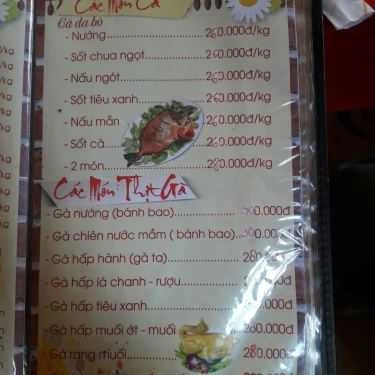 Các Món Cá
Cá da bò
- Nướng 260.000đ/kg
- Sốt chua ngọt 260.000đ/kg
- Nấu ngót 260.000đ/kg
- Sốt tiêu xanh 260.000đ/kg
- Nấu mẳn 260.000đ/kg
- Sốt cà 260.000đ/kg
- 2 món 260.000đ/kg
Các Món Thịt Gà
- Gà nướng (bánh bao)
- Gà chiên nước mắm ( bánh bao)
- Gà hấp hành (gà ta) 280.000đ
- Gà hấp lá chanh - rượu 280.000đ
- Gà hấp tiêu xanh
- Gà hấp muối ớt - muối
- Gà rang muối 280.000đ